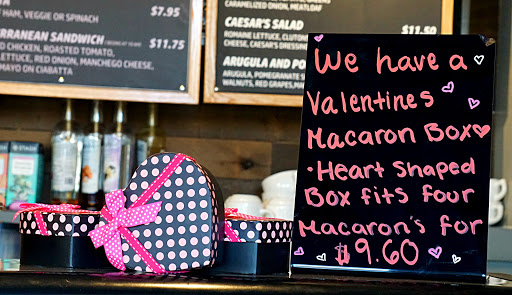 HAM, VEGGIE OR SPINACH
$7.95
RRANEAN SANDWICH
$11.75
D CHICKEN, ROASTED TOMATO,
LETTUCE, RED ONION, MANCHEGO CHEESE,
MAYO ON CIABATTA
CARAMELIZED ONION, MEATLOAF
CAESAR'S SALAD
$11.50
ROMAINE LETTUCE,
CHEESE, CAESAR'S
ARUGULA AND PO
ARUGULA, POMEGRANATE
WALNUTS, RED GRAPES,
We have a
Valentines
Macaron Box
•Heart Shaped
Box fits four
Macaron's for
$9.60